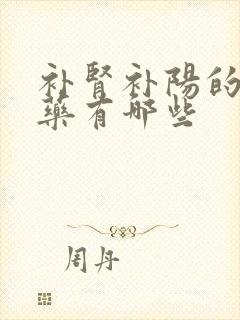 补肾补陽的
藥有哪些
周丹